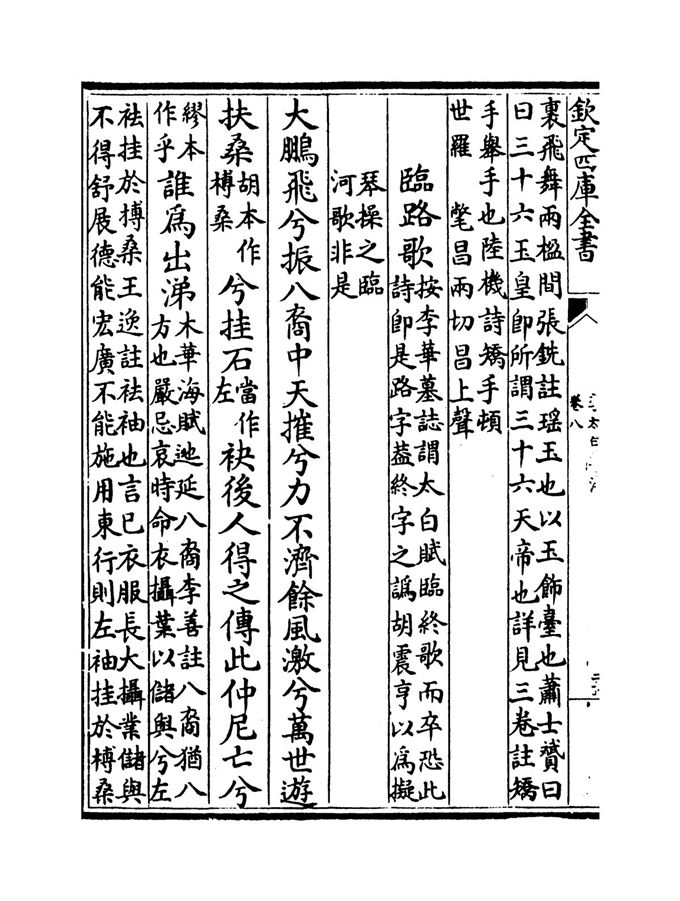 欽定四庫全書
卷八
裏飛舞兩楹間張銑註瑶玉也以玉飾臺也蕭士贇曰
曰三十六玉皇即所謂三十六天帝也詳見三卷註矯
手舉手也陸機詩矯手頓
世羅　氅昌兩切昌上聲
臨路歌按李華墓誌謂太白賦臨終歌而卒恐此
詩即是路字葢終字之譌胡震亨以為擬
琴操之臨
河歌非是
大鵬飛兮振八裔中天摧兮力不濟餘風激兮萬世遊
扶桑胡本作榑桑兮挂石當作左袂後人得之傳此仲尼亡兮
繆本作乎誰為出涕木華海賦迆延八裔李善註八裔猶八
方也嚴忌哀時命衣攝葉以儲與兮左
袪挂於搏桑王逸註袪袖也言已衣服長大攝業儲與
不得舒展德能宏廣不能施用東行則左袖挂於榑桑